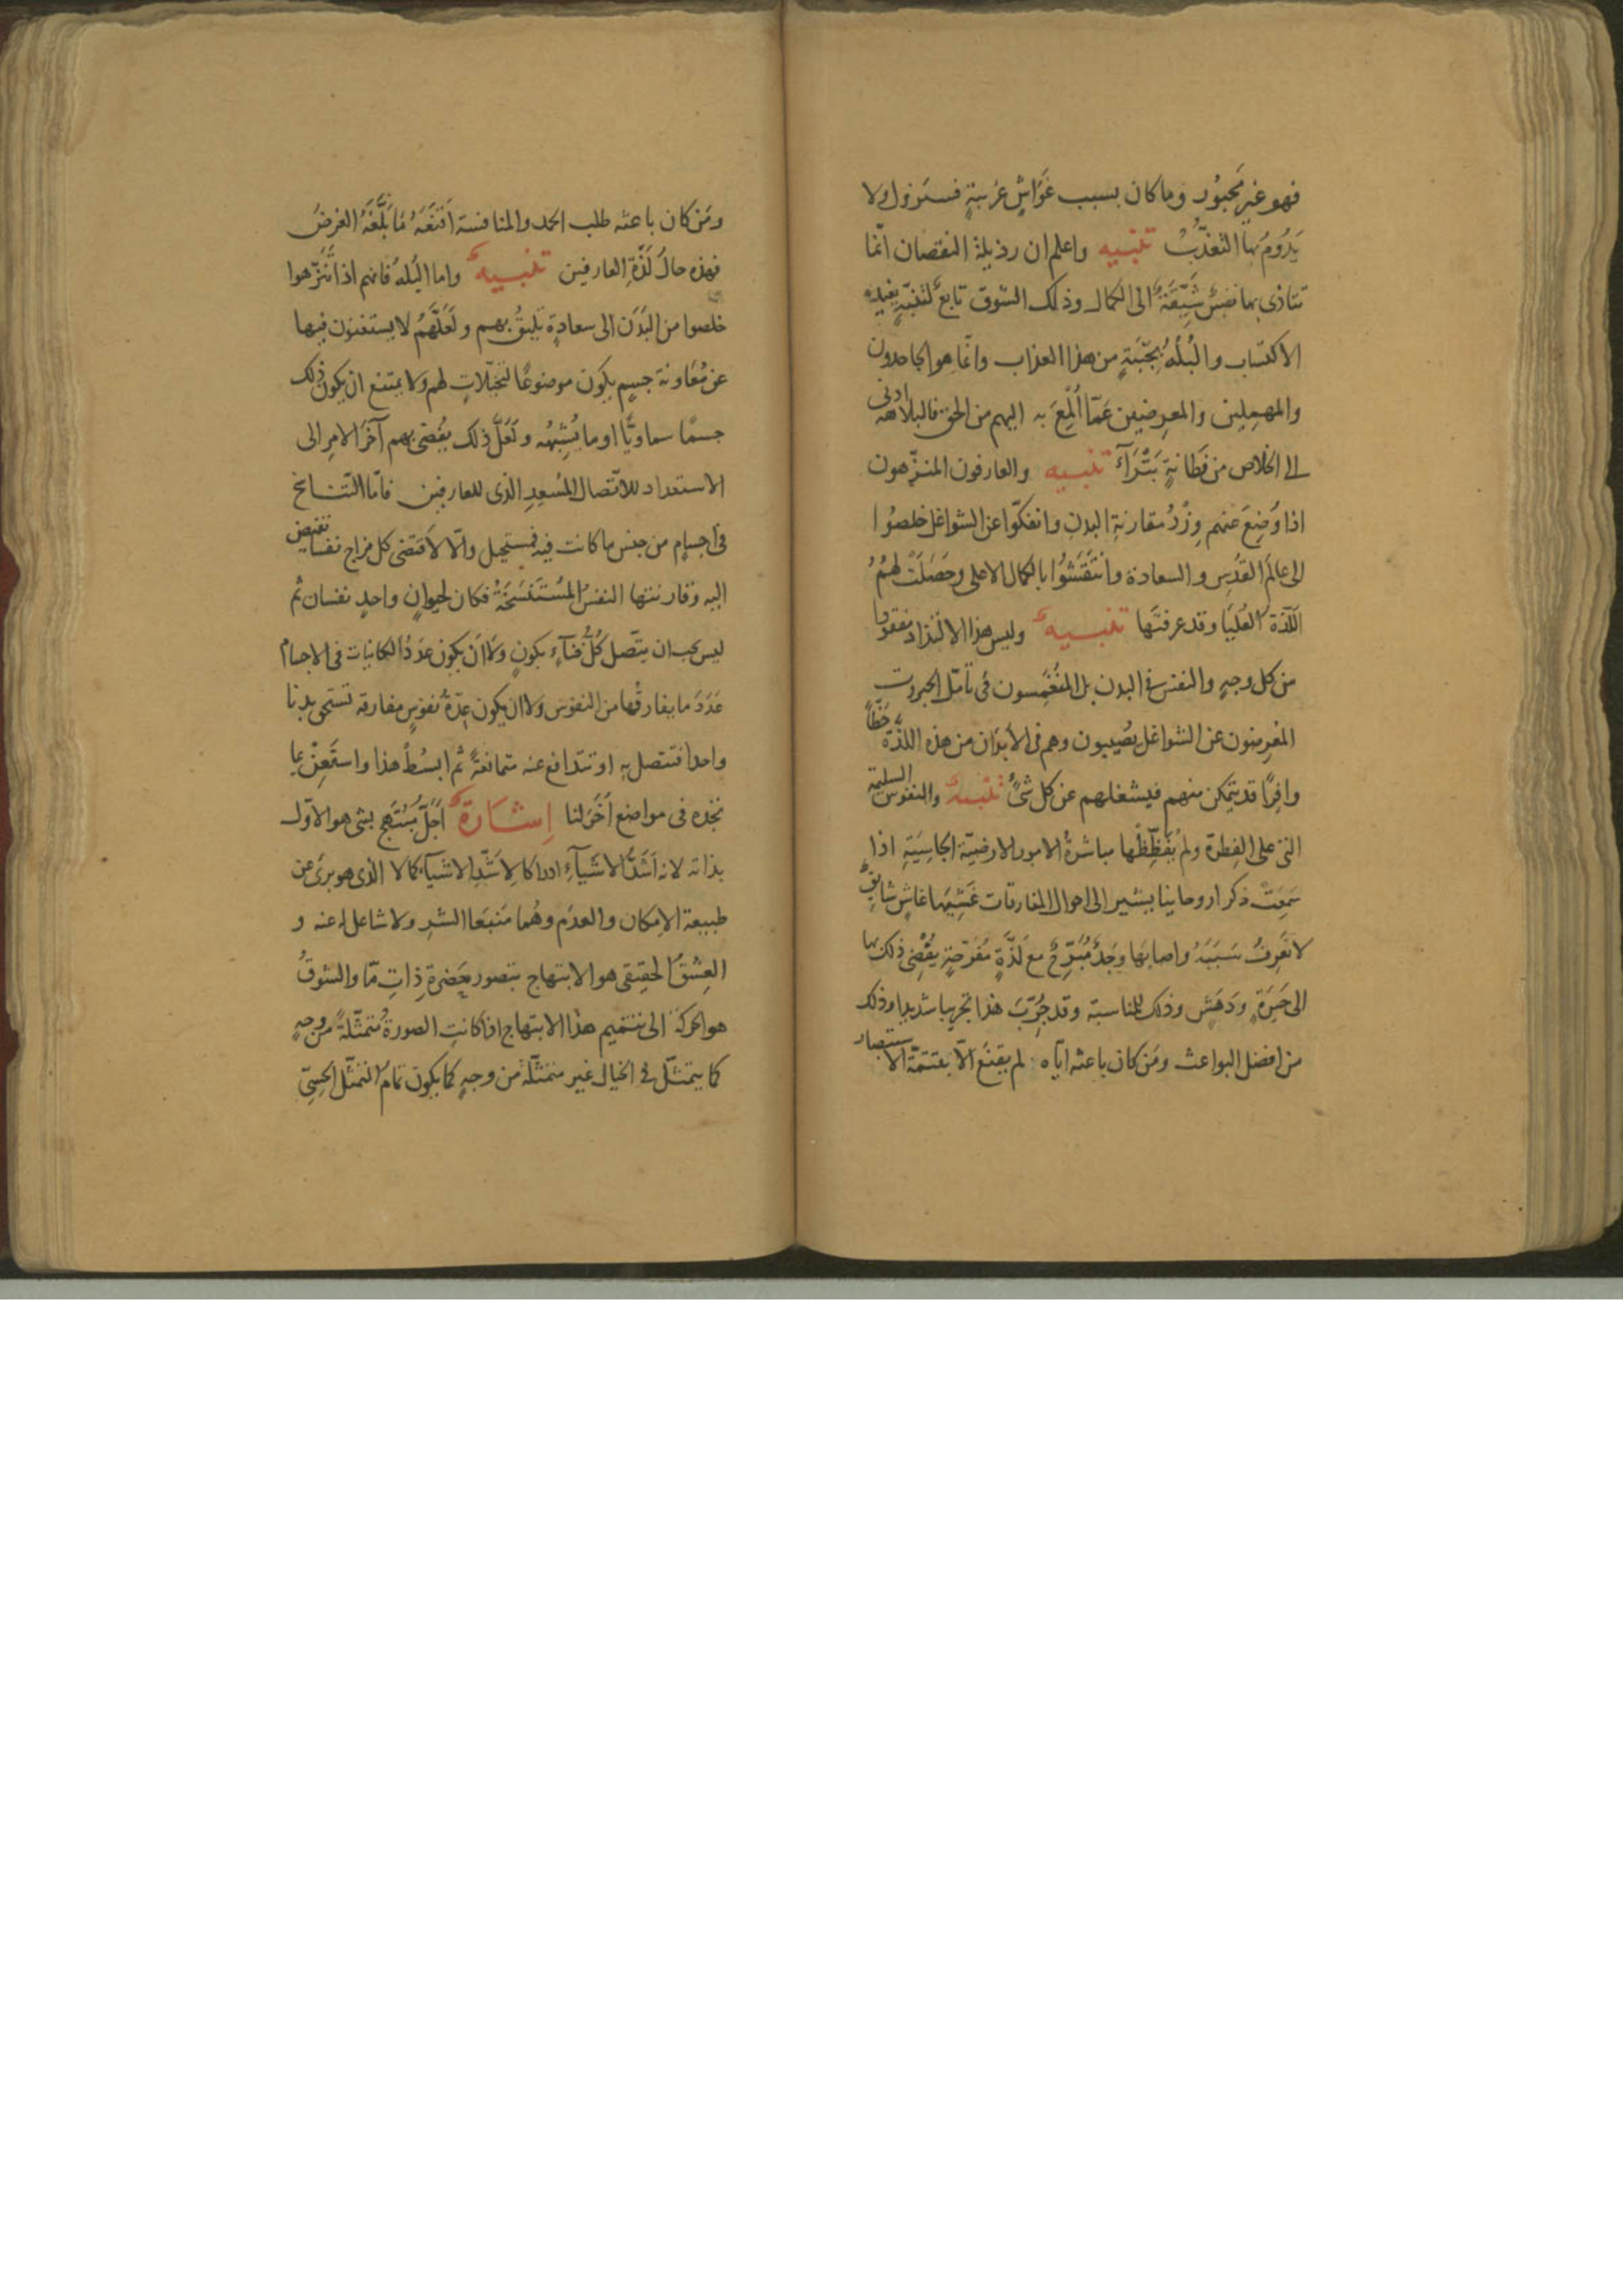 فهو غير مجبور وما كان بسبب غَوَاشٍ غريبةٍ فستزول ولا
يَدُومُ بها التعذّبُ تنبيه واعلم ان رذيلة النقصان انّما
تتاذى بها نفسٌ شيّقةٌ الى الكمال وذلك الشوق تابعٌ لتنبّهٍ يفيده
الاكتساب والبُلهُ بجنبةٍ من هذا العذاب وانّما هو للجاحدين
والمهملين والمعرضين عمّا أُلْمِعَ به اليهم من الحق فالبلاهة ادنى
الى الخلاص من فَطانةٍ بَتْرَآءَ تنبيه والعارفون المنزّهون
اذا وُضِعَ عنهم وِزْرُ مقارنة البدن وانفكّوا عن الشواغل خلصُوا
الى عالَم القُدس والسعادة وانتَقَشُوا بالكمال الاعلى وحَصَلَتْ لهمُ
اللّذّةُ العُليَا وقد عرفتَها تنبيهٌ وليس هذا الالتذاذ مفقودا
من كل وجهٍ والنفس فى البدن بل المنغمسون فى تأمّل الجبروت
المعرضون عن الشواغل يُصيبون وهم فى الأبدان من هذه اللذّة حَظًّا
وافِرًا قد يتمكن منهم فيشغلهم عن كل شئٍ تنبيهٌ والنفوس السليمة
التى على الفِطرة ولم يُفَظِّظْها مباشرةُ الامور الارضيّة الجاسِيَةِ اذا
سَمِعَتْ ذكرا روحانيا يشير الى احوال المفارقات غَشِيَها غاشٍ شايقٌ
لا تَعرِفُ سَبَبَهُ واصابها وَجْدٌ مُبَرِّحٌ مع لَذَّةٍ مُفرّحةٍ يُفْضِى ذلك بها
الى حَيرَةٍ ودَهَشٍ وذلك للمناسبة وقد جُرِّبَ هذا تجريبا شديدا وذلك
من افضل البواعث ومَن كان باعثه ايّاه لم يقنَع الّا بتتمّة الاستبصار
ومَن كان باعثه طلب الحمد والمنافسة اَقنَعَهُ مَا بَلَّغَهُ الغرضَ
فهذه حالُ لَذّةِ العارفين تنبيهٌ واما البُلهُ فانهم اذا تَنَزّهوا
خلصوا من البَدَن الى سعادةٍ تليقُ بهم ولَعَلَّهُم لا يستغنون فيها
عن مُعَاونة جسمٍ يكون موضوعًا لتخيّلاتٍ لهم ولا يمتنع ان يكون ذلك
جسمًا سماويًّا او ما يُشبِهُه ولَعَلّ ذلك يُفضى بهم آخرَ الامرِ الى
الاستعداد للاتّصال المُسعِدِ الذى للعارفين فامّا التناسخ
فى اجسامٍ من جنس ما كانت فيه فمستحيل والّا لاَقتَضى كل مزاج نفسا تفيض
اليه وقارنتها النفسُ المُستَنسَخَةُ فكان لحيوانٍ واحدٍ نفسان ثم
ليس يجب ان يتّصل كُلُّ فنآءٍ بكونٍ ولا ان يكون عَدَدُ الكائنات فى الاجسام
عَدَدَ ما يفارقُها من النفوس ولا ان يكون عِدّةُ نفوسٍ مفارقه تستحق بدنا
واحدا فتتصل به او تتدافع عنه متمانعةً ثم ابسُطْ هذا واستَعِنْ بما
تجده فى مواضع اُخَرَ لنا اِشارَةٌ اَجَلُّ مُبْتَهِجٍ بشئ هو الاوّل
بذاته لانه اَشَدُّ الاشيآءِ ادراكا لاَشَدِّ الاشيآء كمالا الذى هو برئ عن
طبيعة الامكان والعدَم وهُما مَنبَعَا الشرِ ولا شاغل له عنه و
العِشقُ الحقيقى هو الابتهاج بتصور حَضرةِ ذاتٍ مّا والشوقُ
هو الحركة الى تتميم هذا الابتهاج اذا كانتِ الصورةُ مُتمثّلةً من وجهٍ
كما يتمثّل فى الخيال غير متمثّلة من وجهٍ كما يكون تمامُ التمثّل الحِسِّىّ